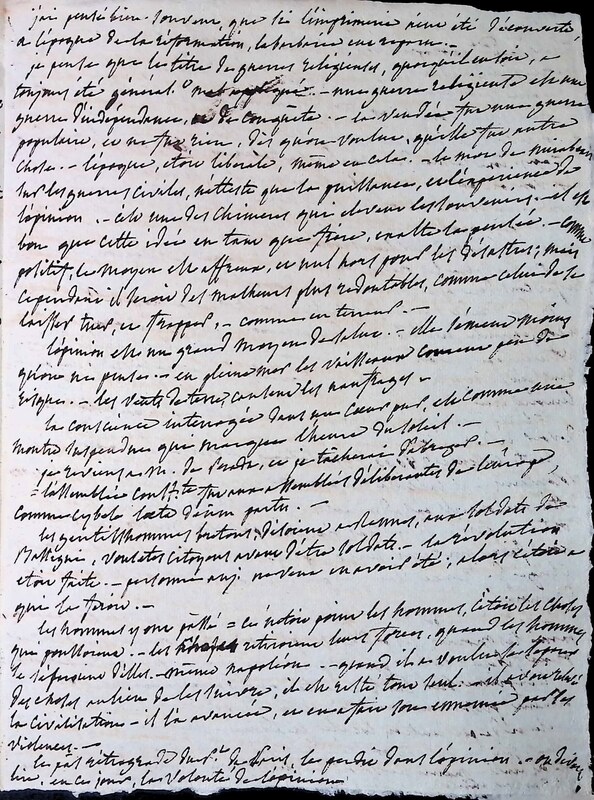 j'ai pensé bien souvent, que si l'imprimerie n'eut été découverte,
a l'époque de la réformation, la barbarie eut
je pense que le titre de guerres religieuses, quoiqu'il en soit, a
toujours été général. une guerre religieuse est une
guerre d'indépendance, de conquête. - la vendée fut une guerre
populaire, ce ne fut rien, dès qu'on voulut, qu'elle fut autre
chose. - l'époque, etoit libérale, même en cela. - le mot de
sur les guerres civiles, n'atteste que la puissance, et l'expérience de
l'opinion. - c'est une des chimeres que les souvenirs. - il est
bon que cette idée en tant que exalte la pensée. - comme
positif, le moyen est affreux, et nul hors pour les désastres; mais
cependant il seroit des malheurs plus redoutables, comme celui de se
laisser tuer, et frapper, - comme en terreur. -
l'opinion est un grand moyen de salut. - elle s'émeut moins
qu'on ne pense. - en pleine mer les vaisseaux courent peu de
risques. - les vents de terre, causent les naufrages. -
la conscience interrogée dans un cœur pur, est comme une
montre suspendue qui marque l'heure du soleil. -
je reviens a M. de et je tacherai d'abréger. -
= l'assemblée const.te fut aux assemblées délibérantes de l'europe,
comme cybele
les gentilshommes bretons, disoient a Rennes, aux soldats de
vous etes citoyens avant d'être soldats. - la révolution
etoit faite. - personne auj. ne veut en avoir été; alors c'étoit a
qui la feroit. -
les hommes y ont passé = ce n'étoit point les hommes, c'étoit les choses
que poussoient. - les choses retrouvent leurs forces, quand les hommes
se séparent d'elles. - même napoleon. - quand il a voulu se séparer
des choses au lieu de les suivre, il est resté tout seul. - il avoit
la civilisation - il l'a avancée, et en a fait son ennemie par les
violences. -
le pas rétrograde du de Paris, les perdit dans l'opinion. - on devoit
lire, en ces jours, la volonté de l'opinion